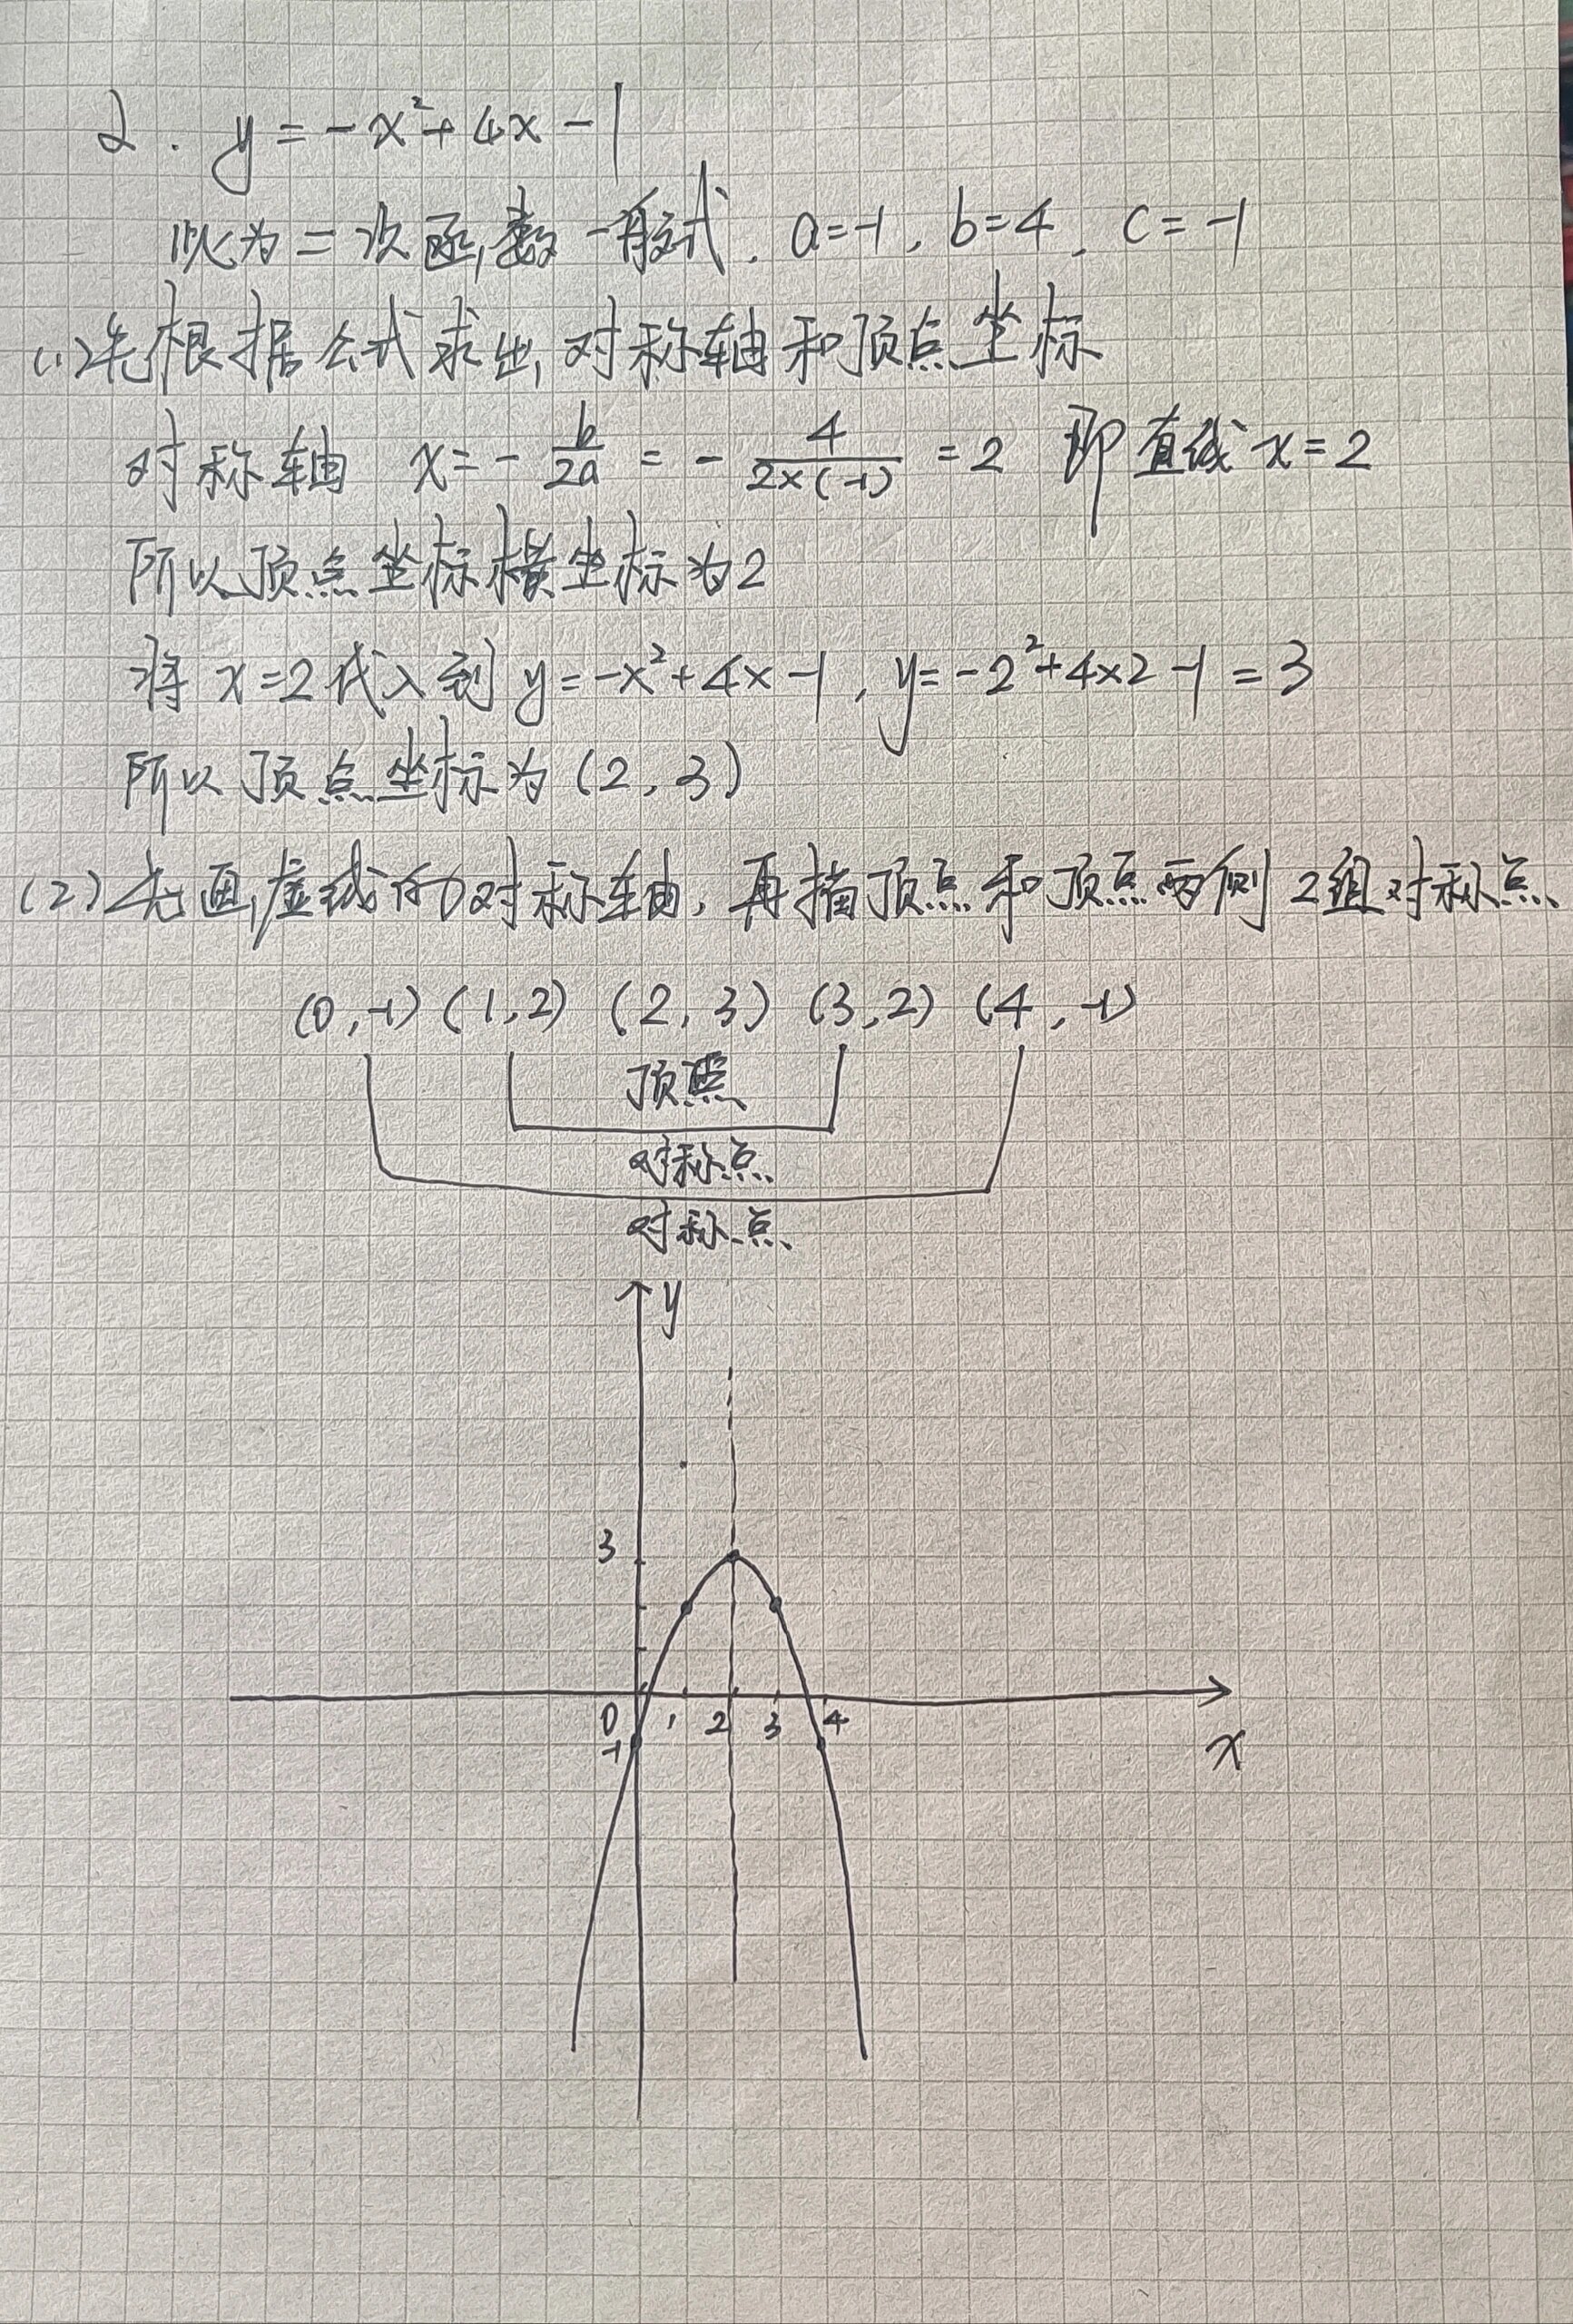 2. y=-x²+4x-1
此为二次函数一般式. a=-1, b=4, c=-1
(1)先根据公式求出对称轴和顶点坐标
对称轴 x=-b/2a=-4/2×(-1)=2 即直线x=2
所以顶点坐标横坐标为2
将x=2代入到y=-x²+4x-1, y=-2²+4×2-1=3
所以顶点坐标为(2,3)
(2)先画虚线的对称轴, 再描顶点和顶点两侧2组对称点
(0,-1) (1,2) (2,3) (3,2) (4,-1)
顶点
对称点
对称点
y
3
0 1 2 3 4
-1
x